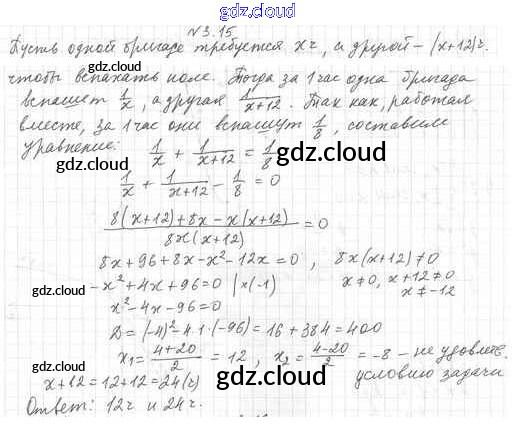 gdz.cloud
№3.15
Пусть одной бригаде требуется x ч, а другой – (x+12)ч.
gdz.cloud
чтобы вспахать поле. Тогда за 1 час одна бригада
вспашет 1/x, а другая 1/(x+12). Так как, работая
вместе, за 1 час они вспашут 1/8, составим
уравнение: 1/x + 1/(x+12) = 1/8
gdz.cloud
gdz.cloud
1/x + 1/(x+12) - 1/8 = 0
(8(x+12)+8x-x(x+12))/(8x(x+12)) = 0
8x+96+8x-x²-12x=0, 8x(x+12)≠0
gdz.cloud
-x²+4x+96=0 |×(-1) x≠0, x+12≠0
gdz.cloud
x²-4x-96=0 x≠-12
D=(-4)²-4·1·(-96)=16+384=400
x₁=(4+20)/2=12, x₂=(4-20)/2=-8 – не удовлетв.
gdz.cloud
x+12=12+12=24(ч) условию задачи
gdz.cloud
Ответ: 12ч и 24ч.